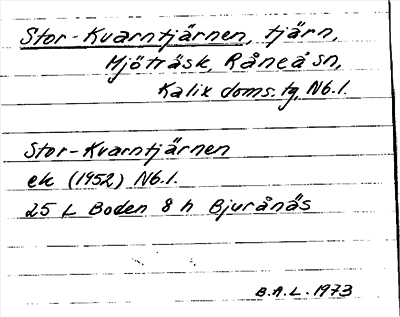 Stor-Kvarntjärnen, tjärn,
Mjöträsk, Råneå sn,
Kalix doms. tg, Nb.l.
Stor-Kvarntjärnen
ek (1952) Nb.l.
25 L Boden 8 h Bjurånäs
B.A.L. 1973